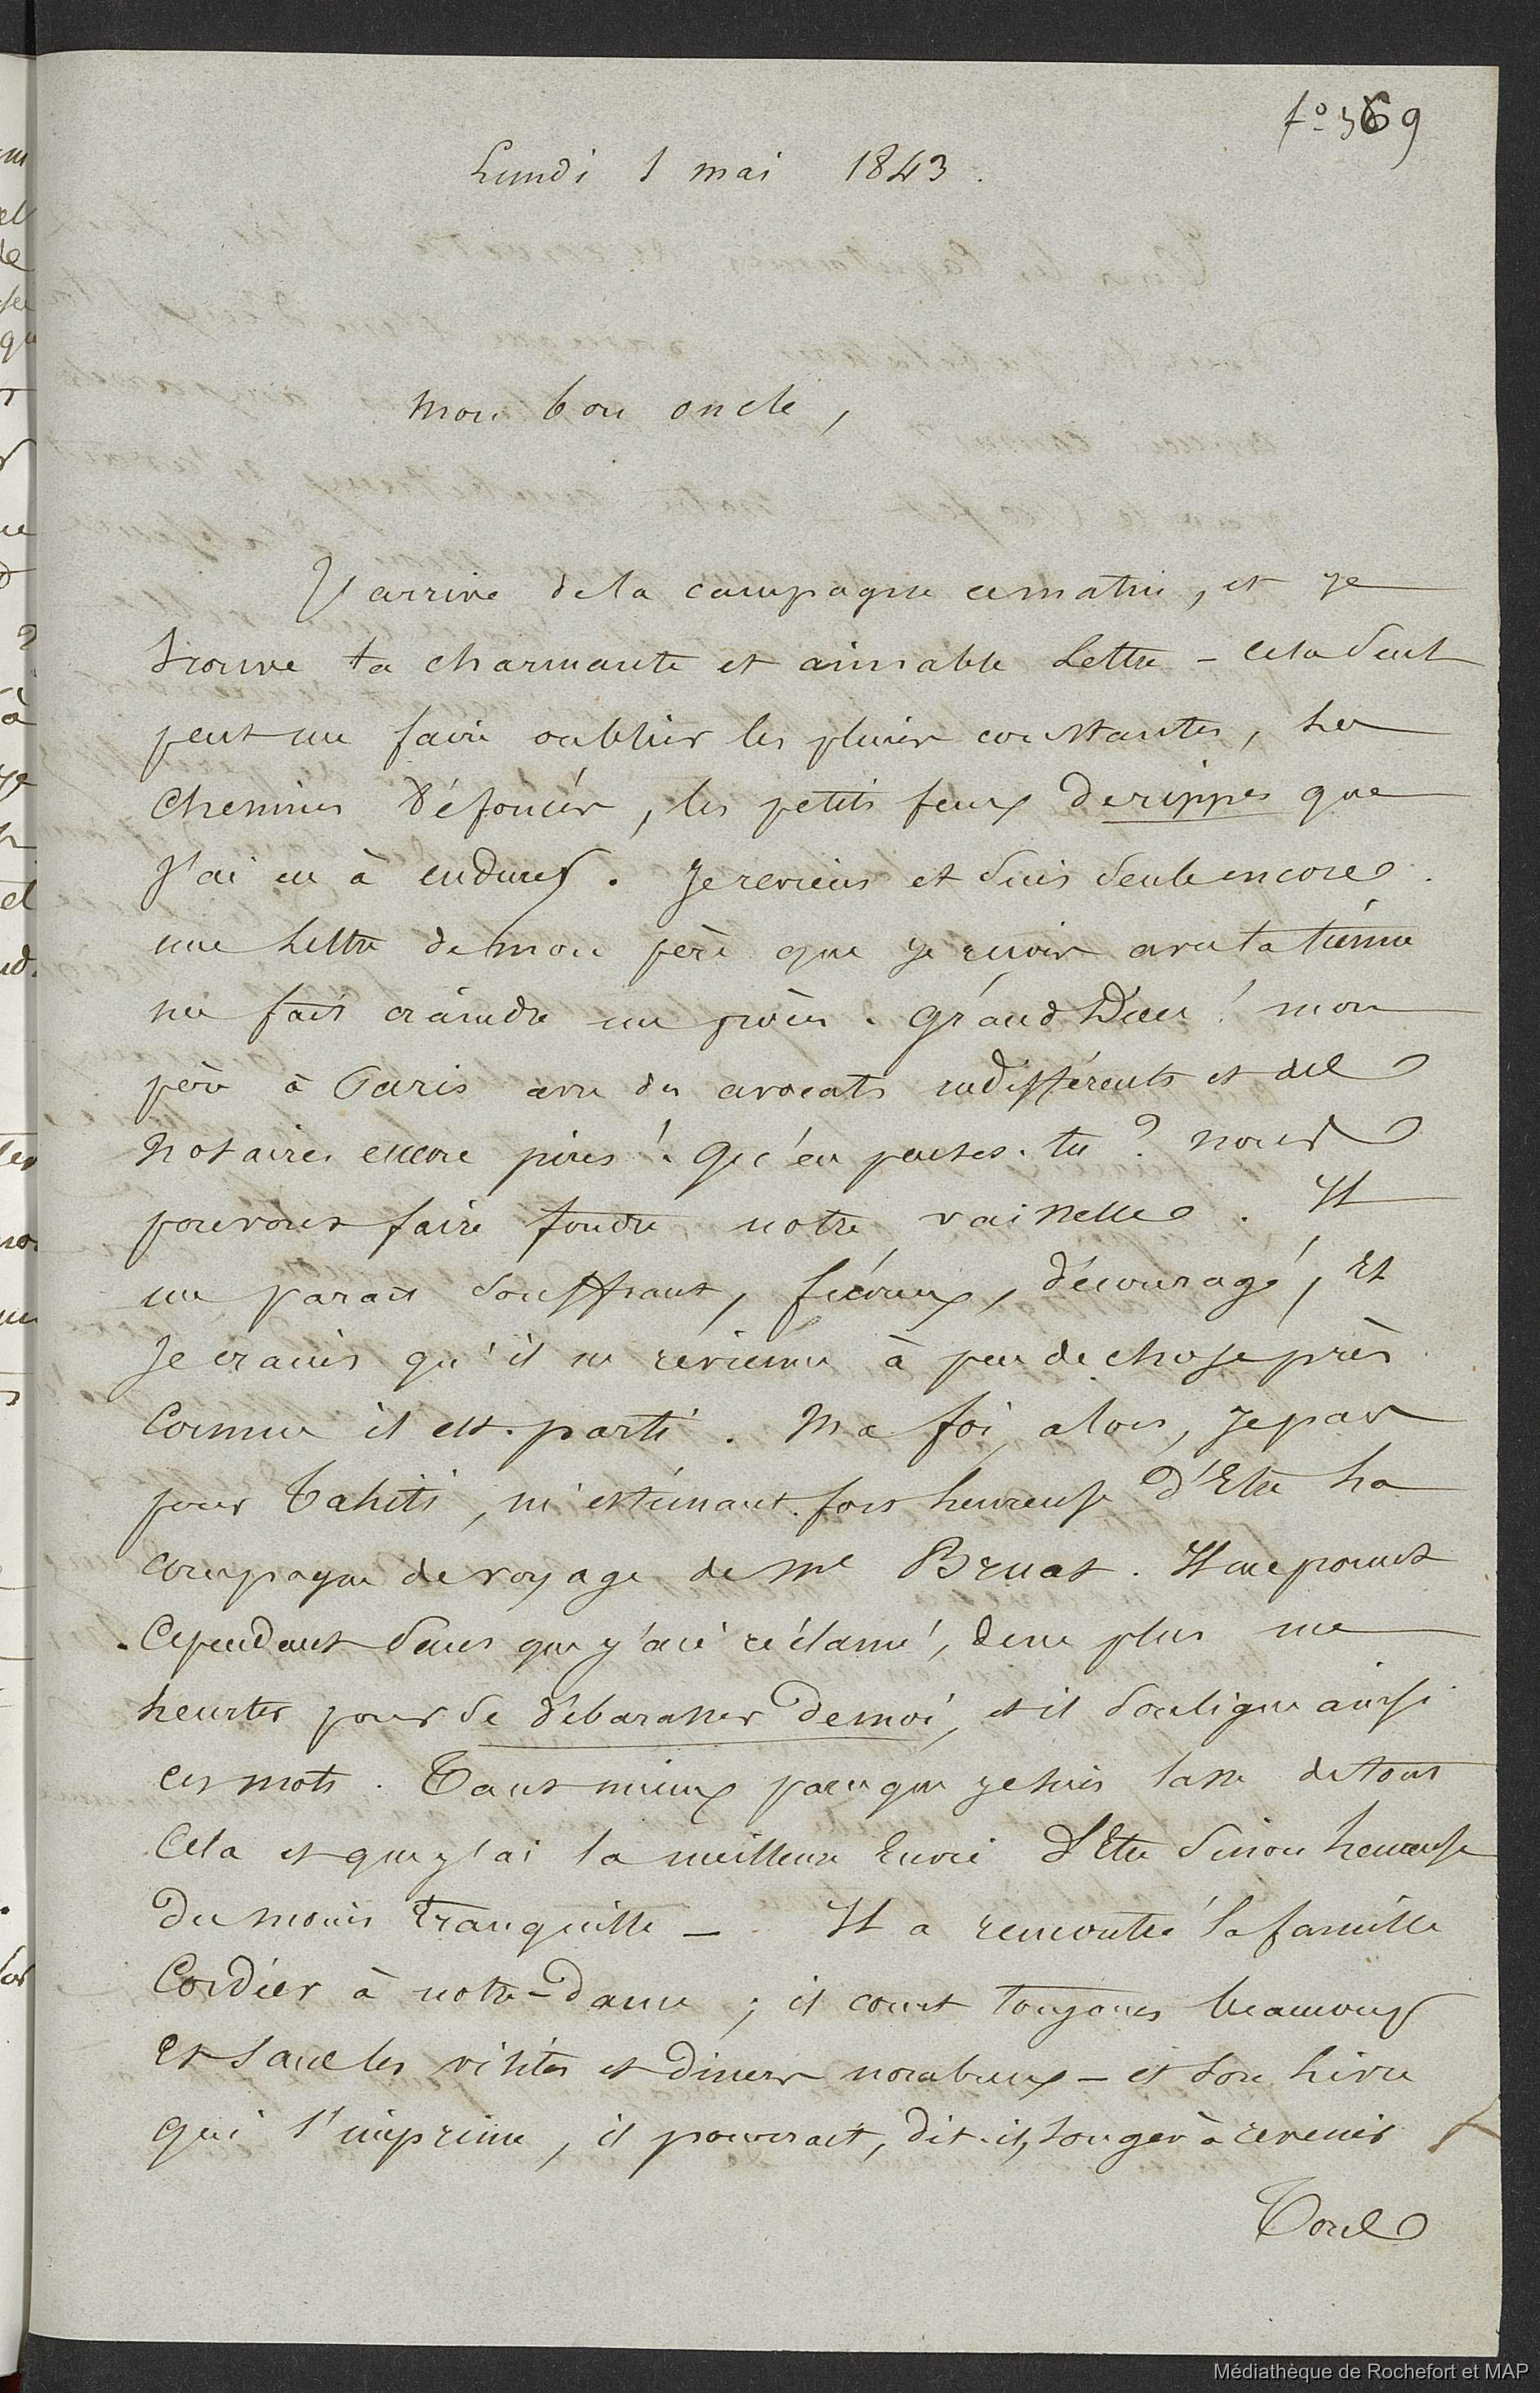 fo 369
Lundi 1 mai 1843.
Mon bon oncle,
J'arrive de la campagne ce matin, et je
trouve ta charmante et aimable lettre - cela seul
peut me faire oublier les pluies constantes, les
chemins défoncés, les petits feux de rippes que
j'ai eu à endurer. Je reviens et suis seule encore.
une lettre de mon père que je reçois avec la tienne
me fait craindre un procès. Grand Dieu! mon
père à Paris avec des avocats indifférents et des
notaires encore pires! Qu'en penses-tu? nous
pouvons faire fondre notre vaisselle. Il
me parait souffrant, fiévreux, découragé, et
je crains qu'il ne revienne à peu de chose près
comme il est parti. Ma foi, alors, je pars
pour Tahiti, m'estimant fort heureuse d'être la
compagne de voyage de Me Bruat. Il me promet
cependant sans que j'aie réclamé, de ne plus me
heurter pour se débarasser de moi, et il souligne ainsi
ces mots. Tant mieux parce que je suis lasse de tout
cela et que j'ai la meilleure envie d'être sinon heureuse
du moins tranquille - Il a rencontré la famille
Cordier à notre-Dame; il court toujours beaucoup
et sauf les visites et diners nombreux - et son livre
qui s'imprime, il pourrait, dit-il, songer à revenir
Tout
Médiathèque de Rochefort et MAP